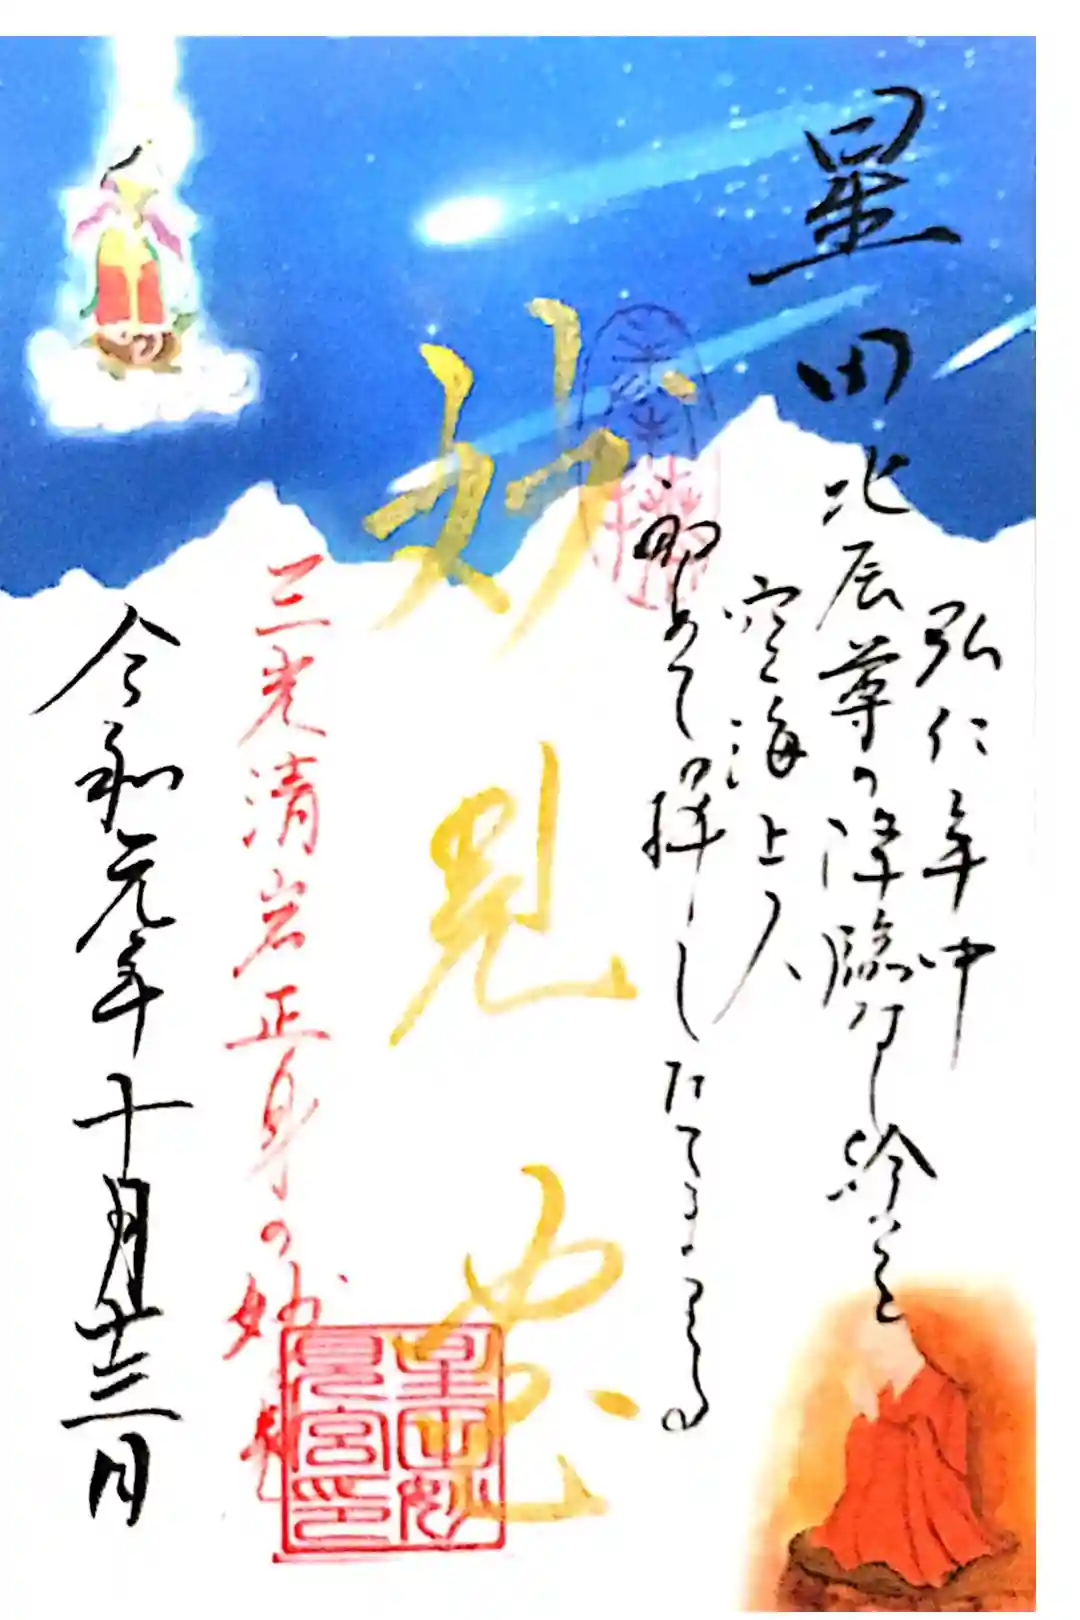 星田
弘仁年中
北辰尊の降臨ありし給ふを
空海上人
初めて拝したてまつる
妙見宮
三光清岩正身の妙見
星田妙見宮印
令和元年十月十三日